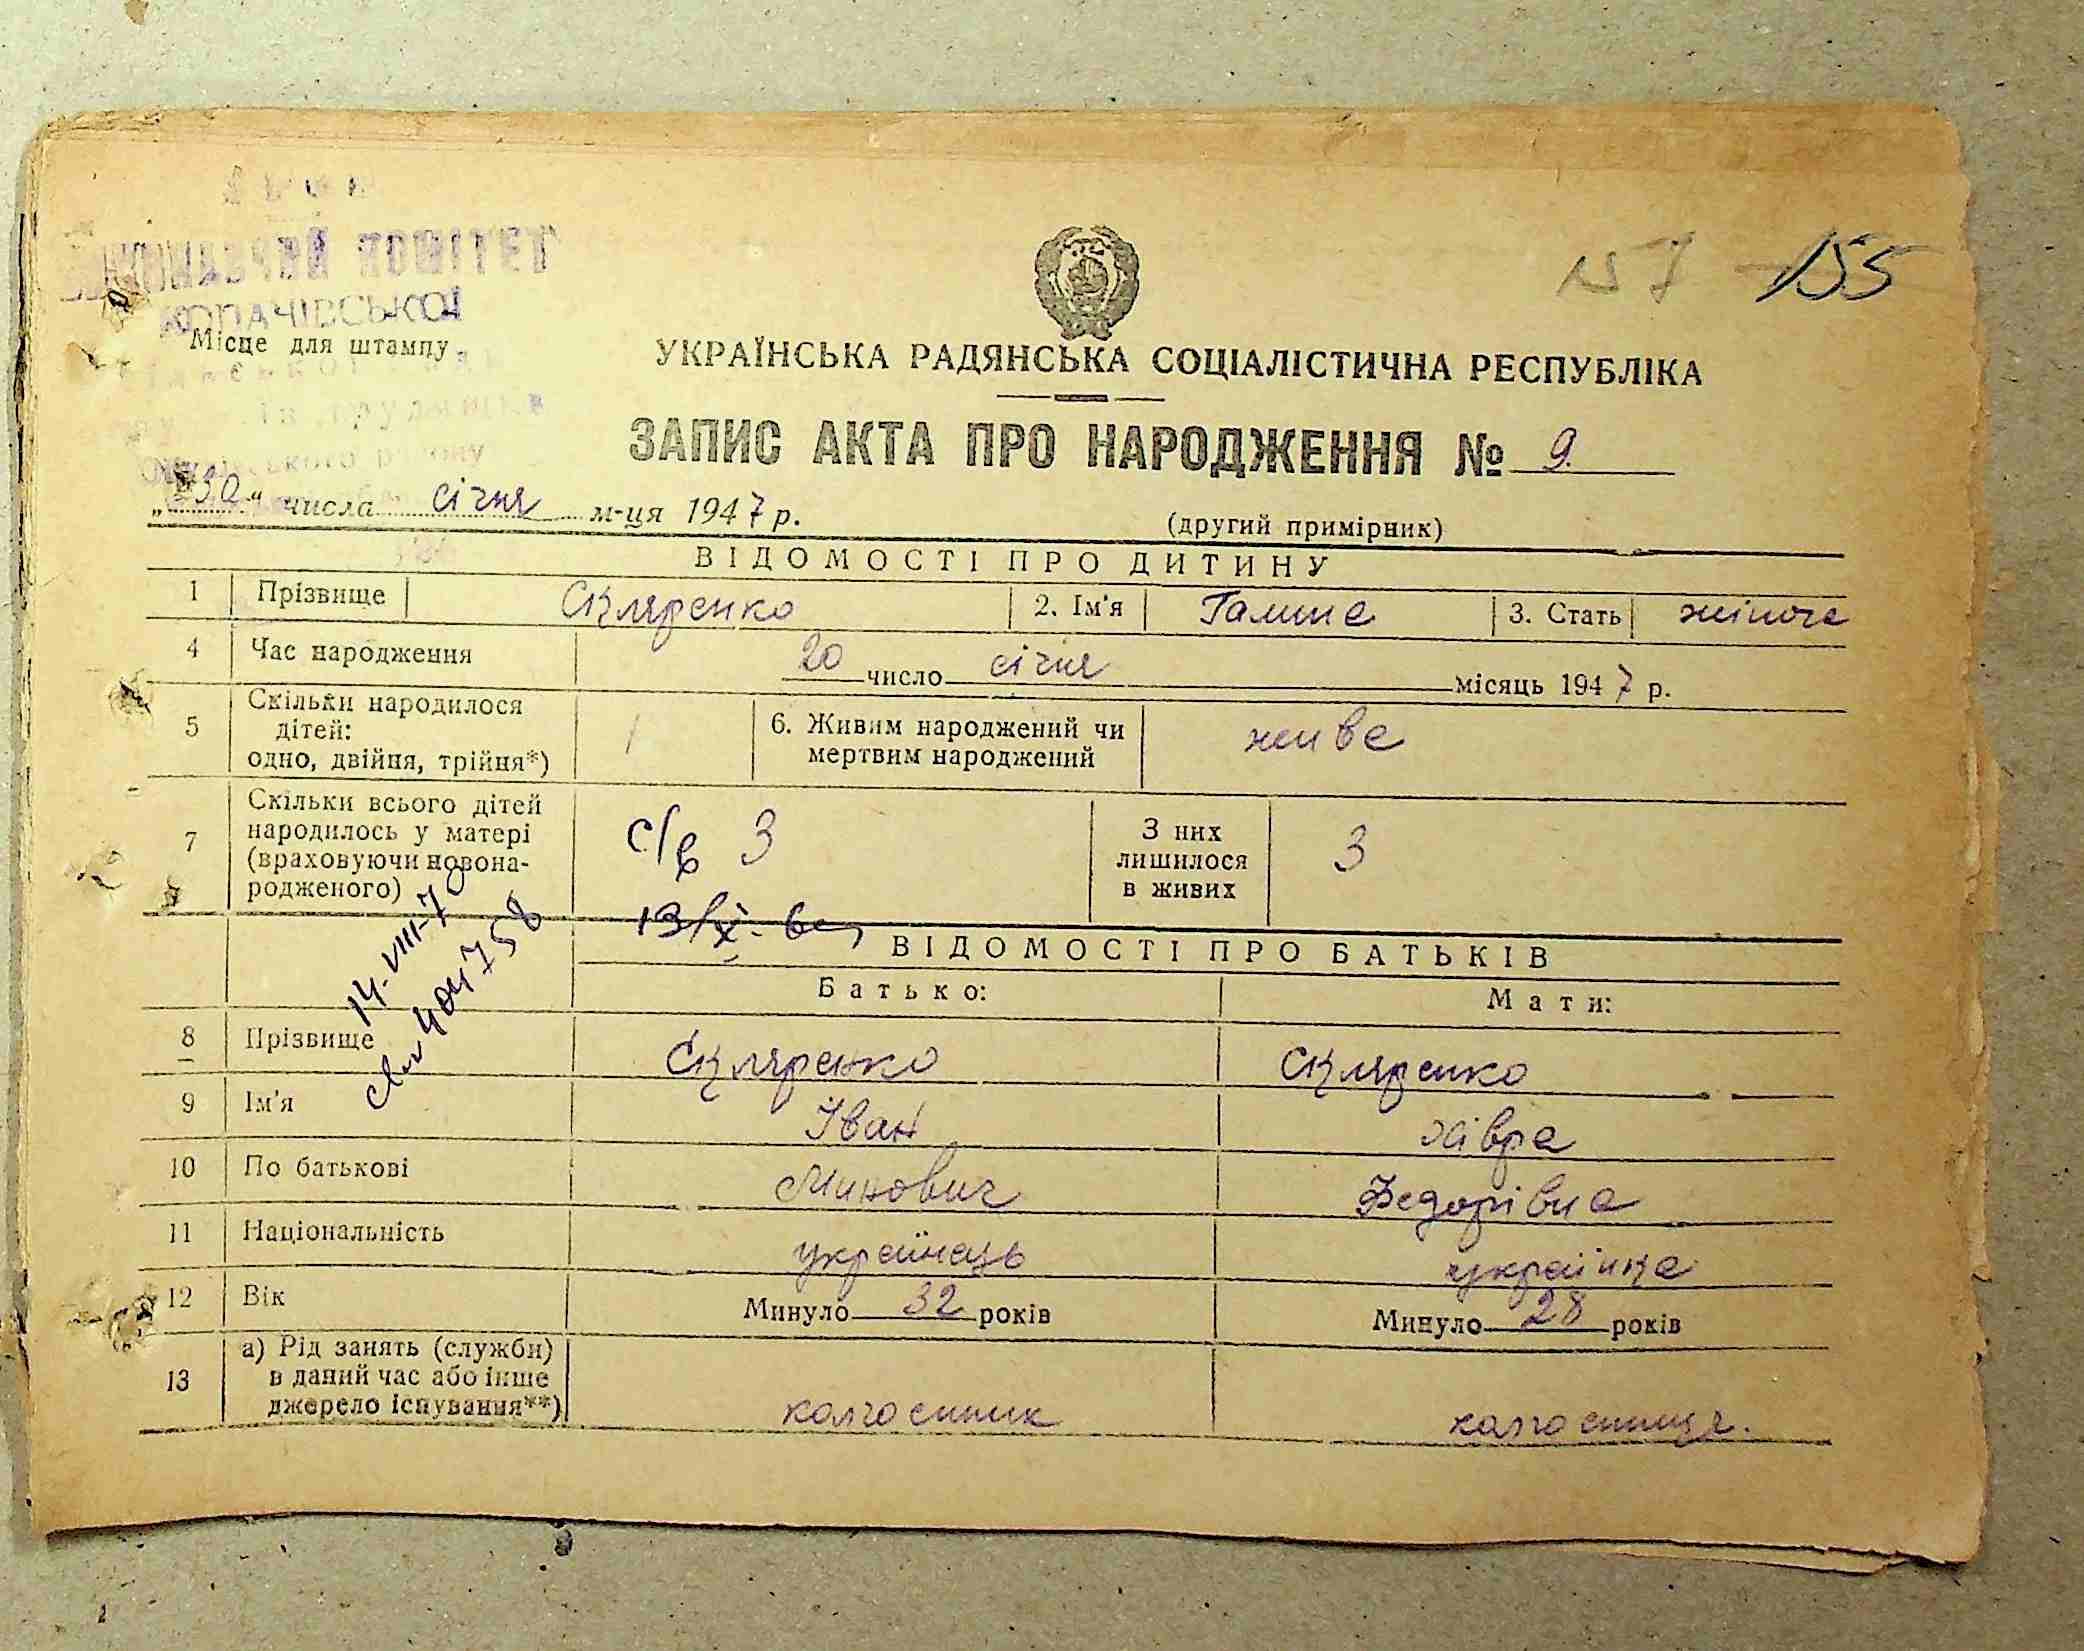 ВИКОНАВЧИЙ КОМІТЕТ
КОПАЧІВСЬКОЇ
Місце для штампу
№ 7 155
УКРАЇНСЬКА РАДЯНСЬКА СОЦІАЛІСТИЧНА РЕСПУБЛІКА
ЗАПИС АКТА ПРО НАРОДЖЕННЯ № 9.
„30“ числа січня м-ця 1947 р.
(другий примірник)
ВІДОМОСТІ ПРО ДИТИНУ
1 Прізвище Скляренко 2. Ім'я Галина 3. Стать жіноча
4 Час народження 20 число січня місяць 1947 р.
5 Скільки народилося дітей: одно, двійня, трійня*) 1 6. Живим народжений чи мертвим народжений живе
7 Скільки всього дітей народилось у матері (враховуючи новонародженого) с/в 3 З них лишилося в живих 3
13/X
14-VIII-70
404758
ВІДОМОСТІ ПРО БАТЬКІВ
Батько: Мати:
8 Прізвище Скляренко Скляренко
9 Ім'я Іван Хівра
10 По батькові Минович Федорівна
11 Національність українець українка
12 Вік Минуло 32 років Минуло 28 років
13 а) Рід занять (служби) в даний час або інше джерело існування**) колгоспник колгоспниця.